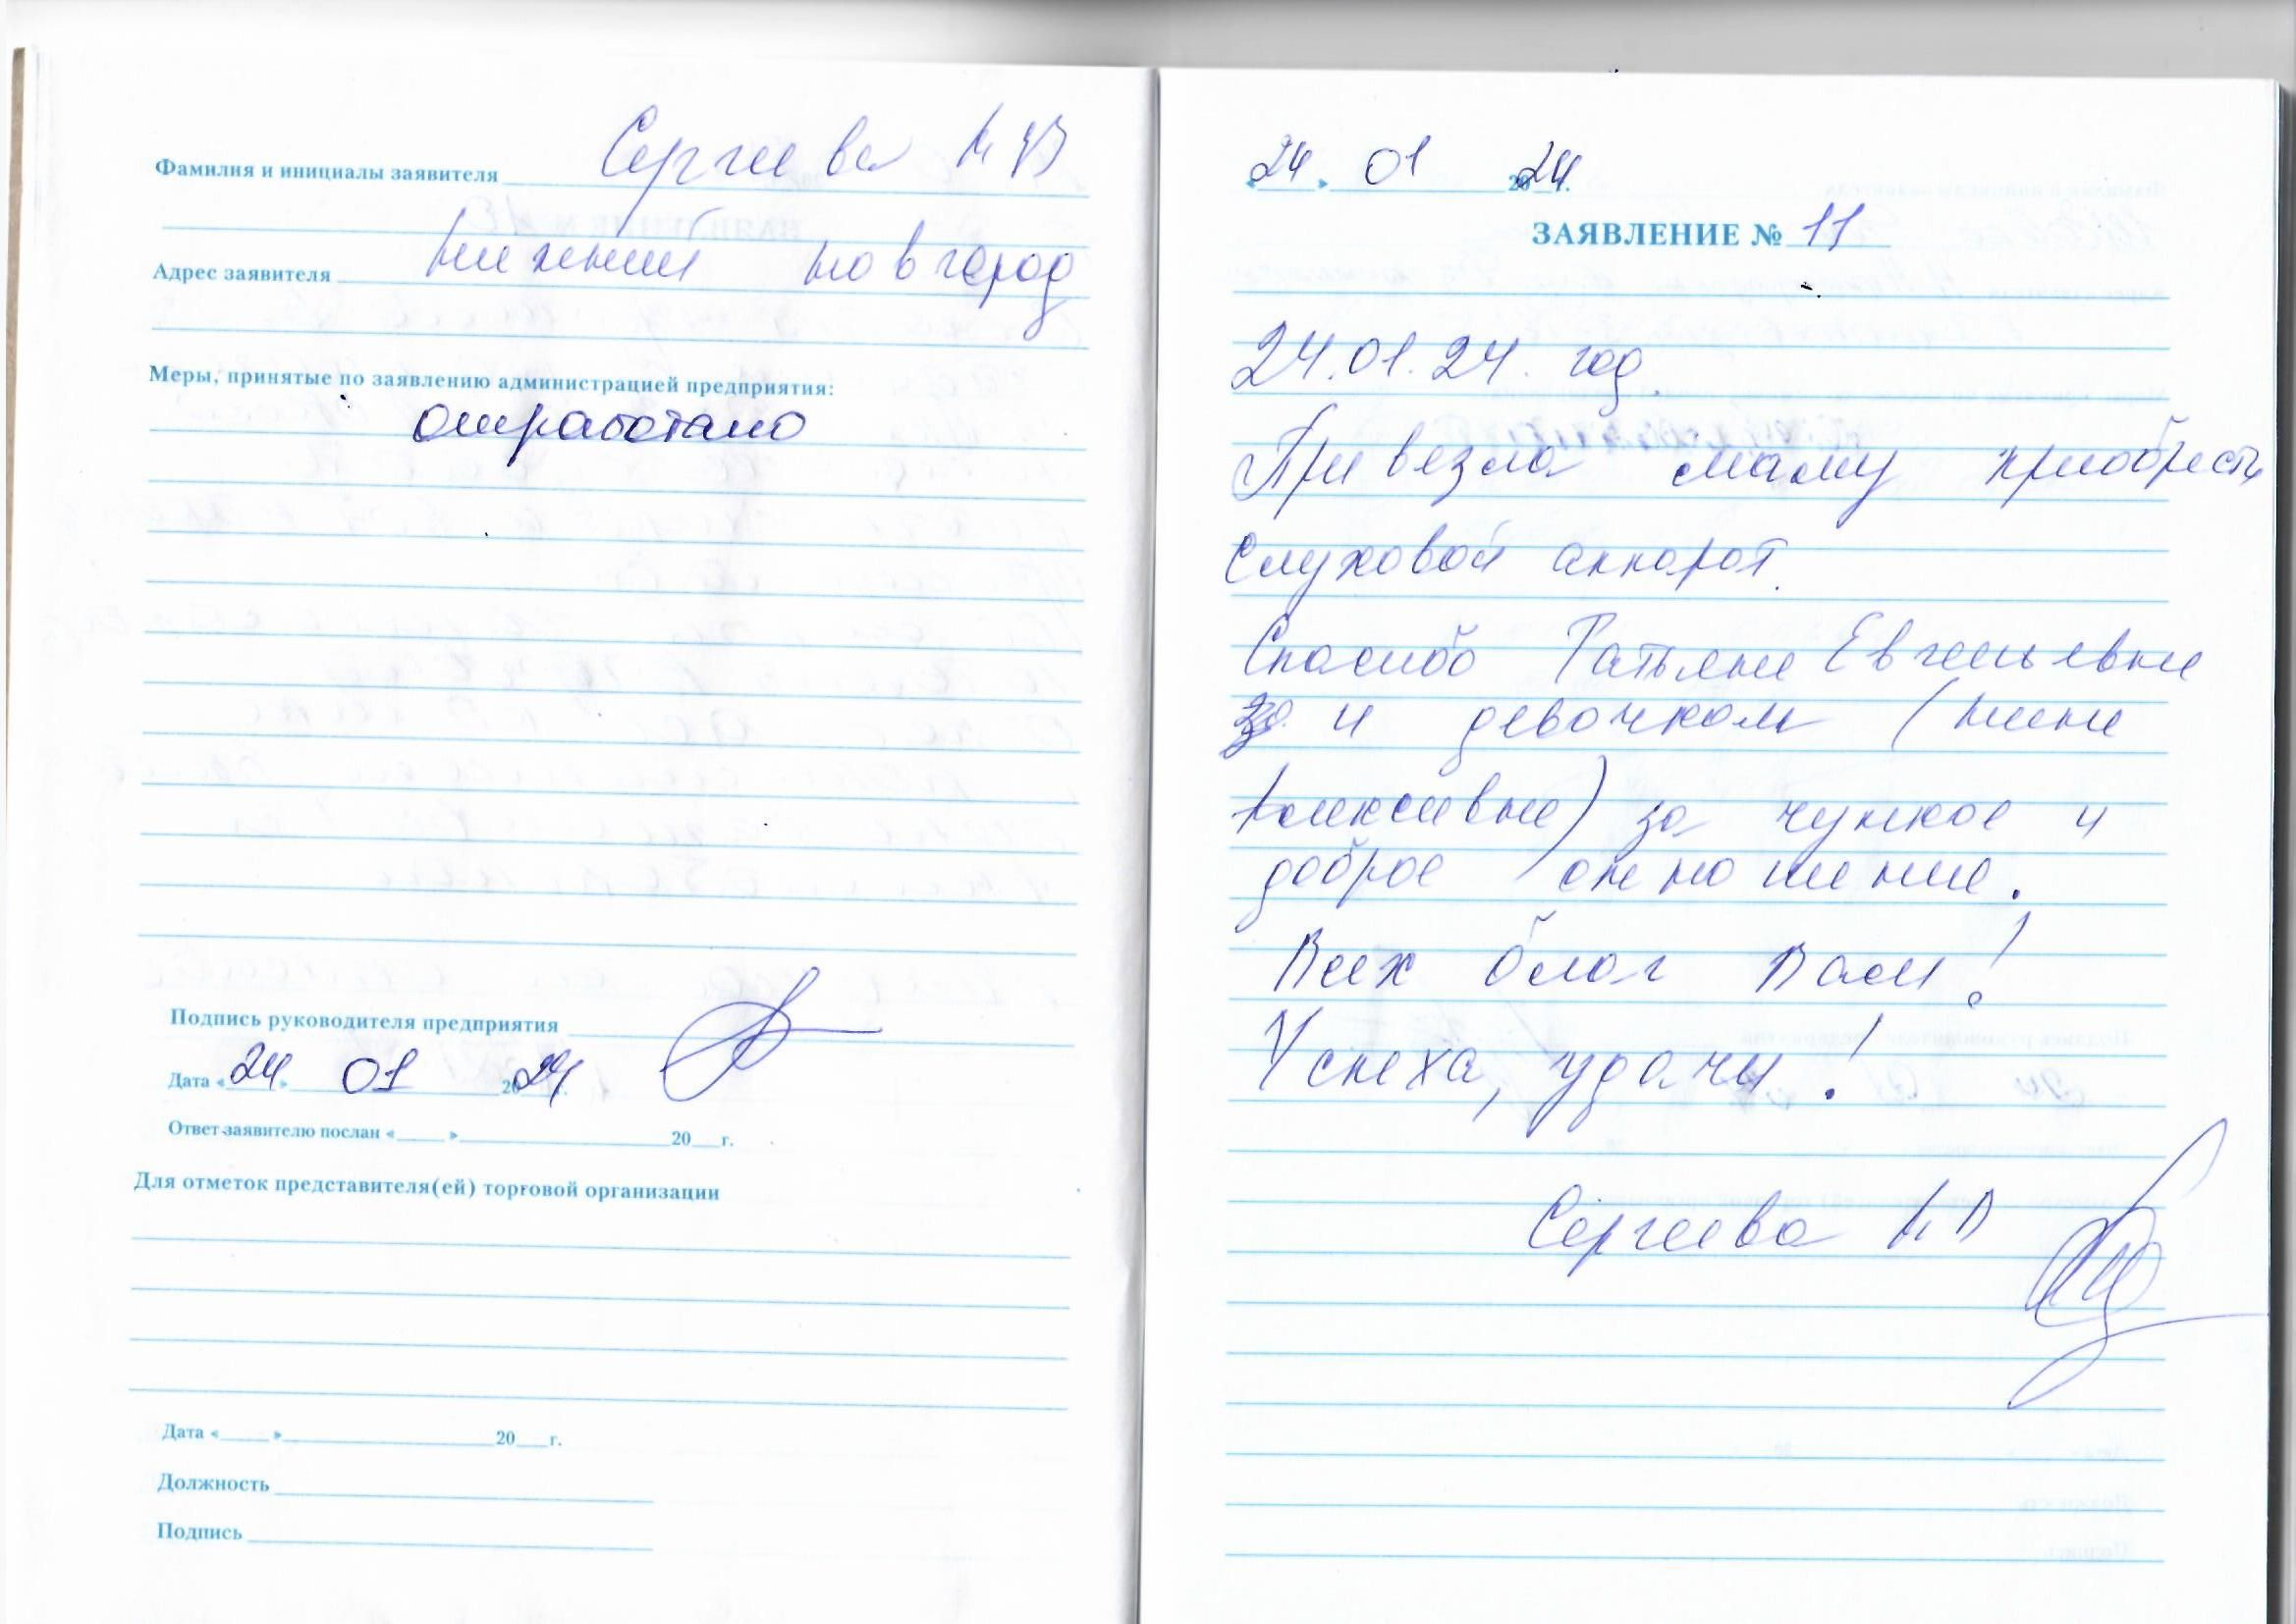 Фамилия и инициалы заявителя Сергеева Н В
Адрес заявителя Нижний Новгород
Меры, принятые по заявлению администрацией предприятия:
отработано
Подпись руководителя предприятия
Дата «24» 01 2024 г.
Ответ заявителю послан « » 20 г.
Для отметок представителя(ей) торговой организации
Дата « » 20 г.
Должность
Подпись
«24» 01 2024 г.
ЗАЯВЛЕНИЕ № 11
24.01.24. год.
Привезла маму приобрести
слуховой аппарат.
Спасибо Татьяне Евгеньевне
и девочкам (Нине
Алексеевне) за чуткое и
доброе отношение.
Всех благ Вам!
Успеха, удачи!
Сергеева Н В